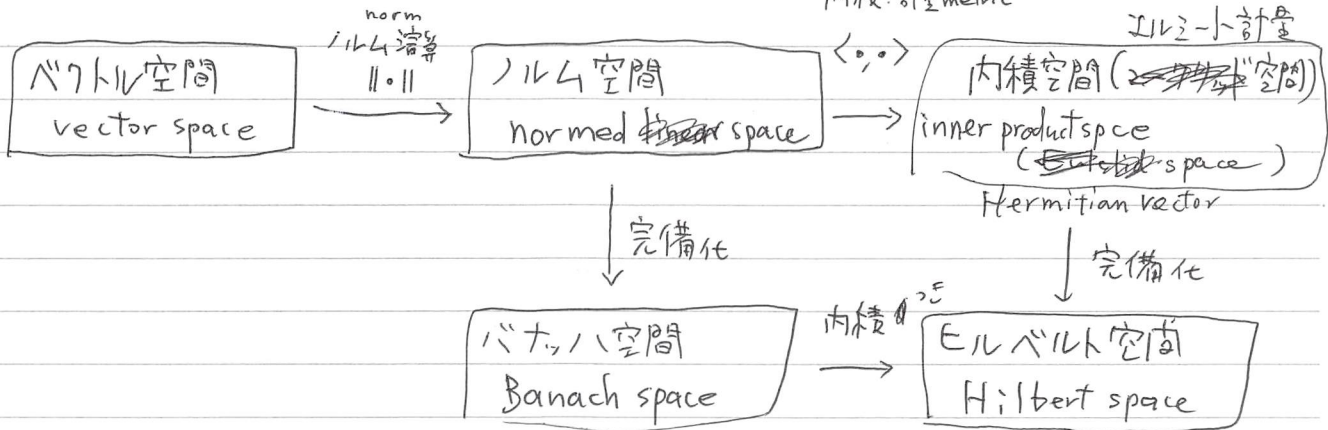 norm
ノルム演算
‖・‖
ベクトル空間
vector space
ノルム空間
normed space
metric
<・,・>
エルミート計量
内積空間(空間)
inner product spce
( space )
Hermitian vector
完備化
完備化
バナッハ空間
Banach space
内積つき
ヒルベルト空间
Hilbert space